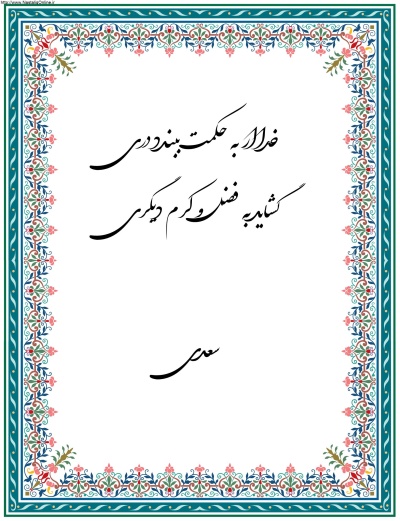 http://www.NastaliqOnline.ir
خدا ار به حکمت ببندد دری
گشاید به فضل و کرم دیگری
سعدی